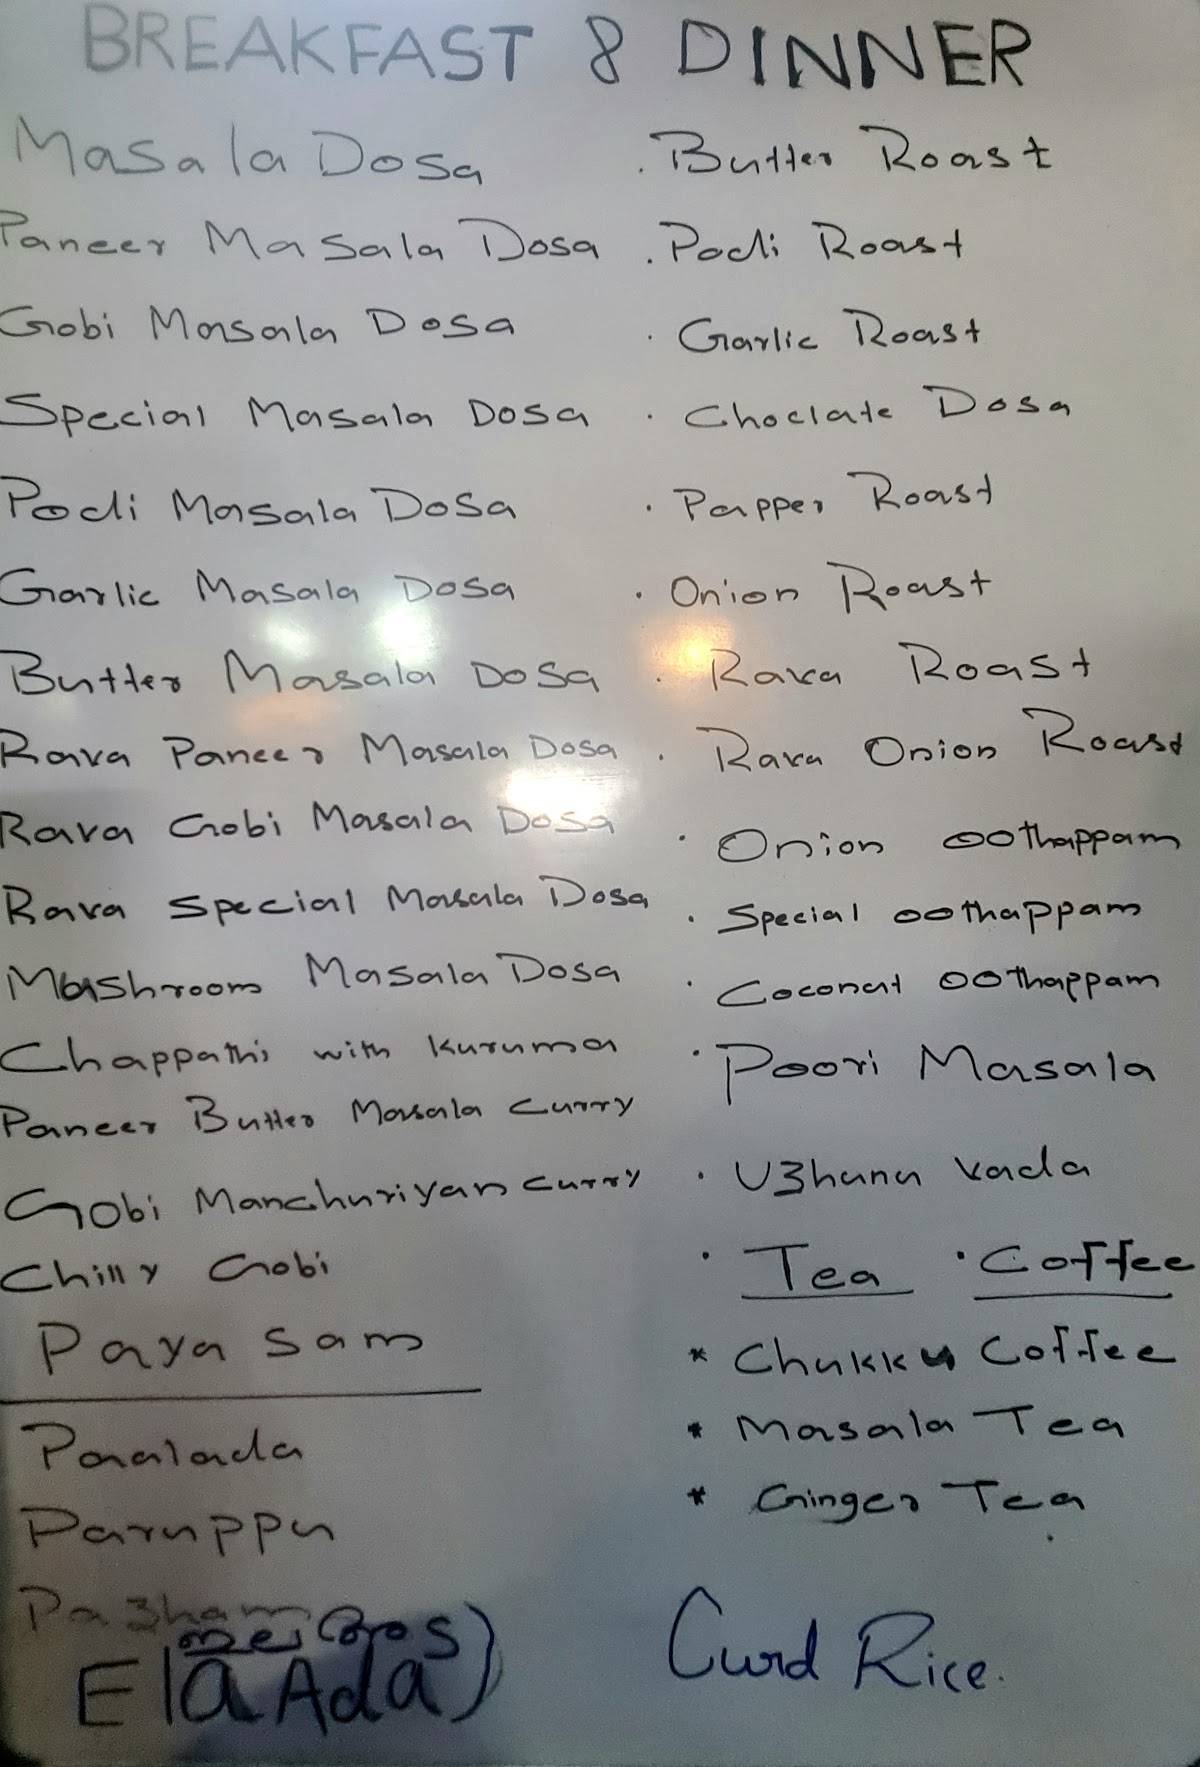 BREAKFAST & DINNER
Masala Dosa
Paneer Masala Dosa
Gobi Masala Dosa
Special Masala Dosa
Podi Masala Dosa
Garlic Masala Dosa
Butter Masala Dosa
Rava Paneer Masala Dosa
Rava Gobi Masala Dosa
Rava Special Masala Dosa
Mashroom Masala Dosa
Chappathi with Kuruma
Paneer Butter Masala Curry
Gobi Manchuriyan Curry
Chilly Gobi
Payasam
Paalada
Paruppu
Pazham
Ela Ada
. Butter Roast
. Podi Roast
. Garlic Roast
. Choclate Dosa
. Papper Roast
. Onion Roast
. Rava Roast
. Rava Onion Roast
. Onion oothappam
. Special oothappam
. Coconut oothappam
. Poori Masala
. Uzhunu vada
. Tea . Coffee
* Chukku Coffee
* Masala Tea
* Ginger Tea
Curd Rice.